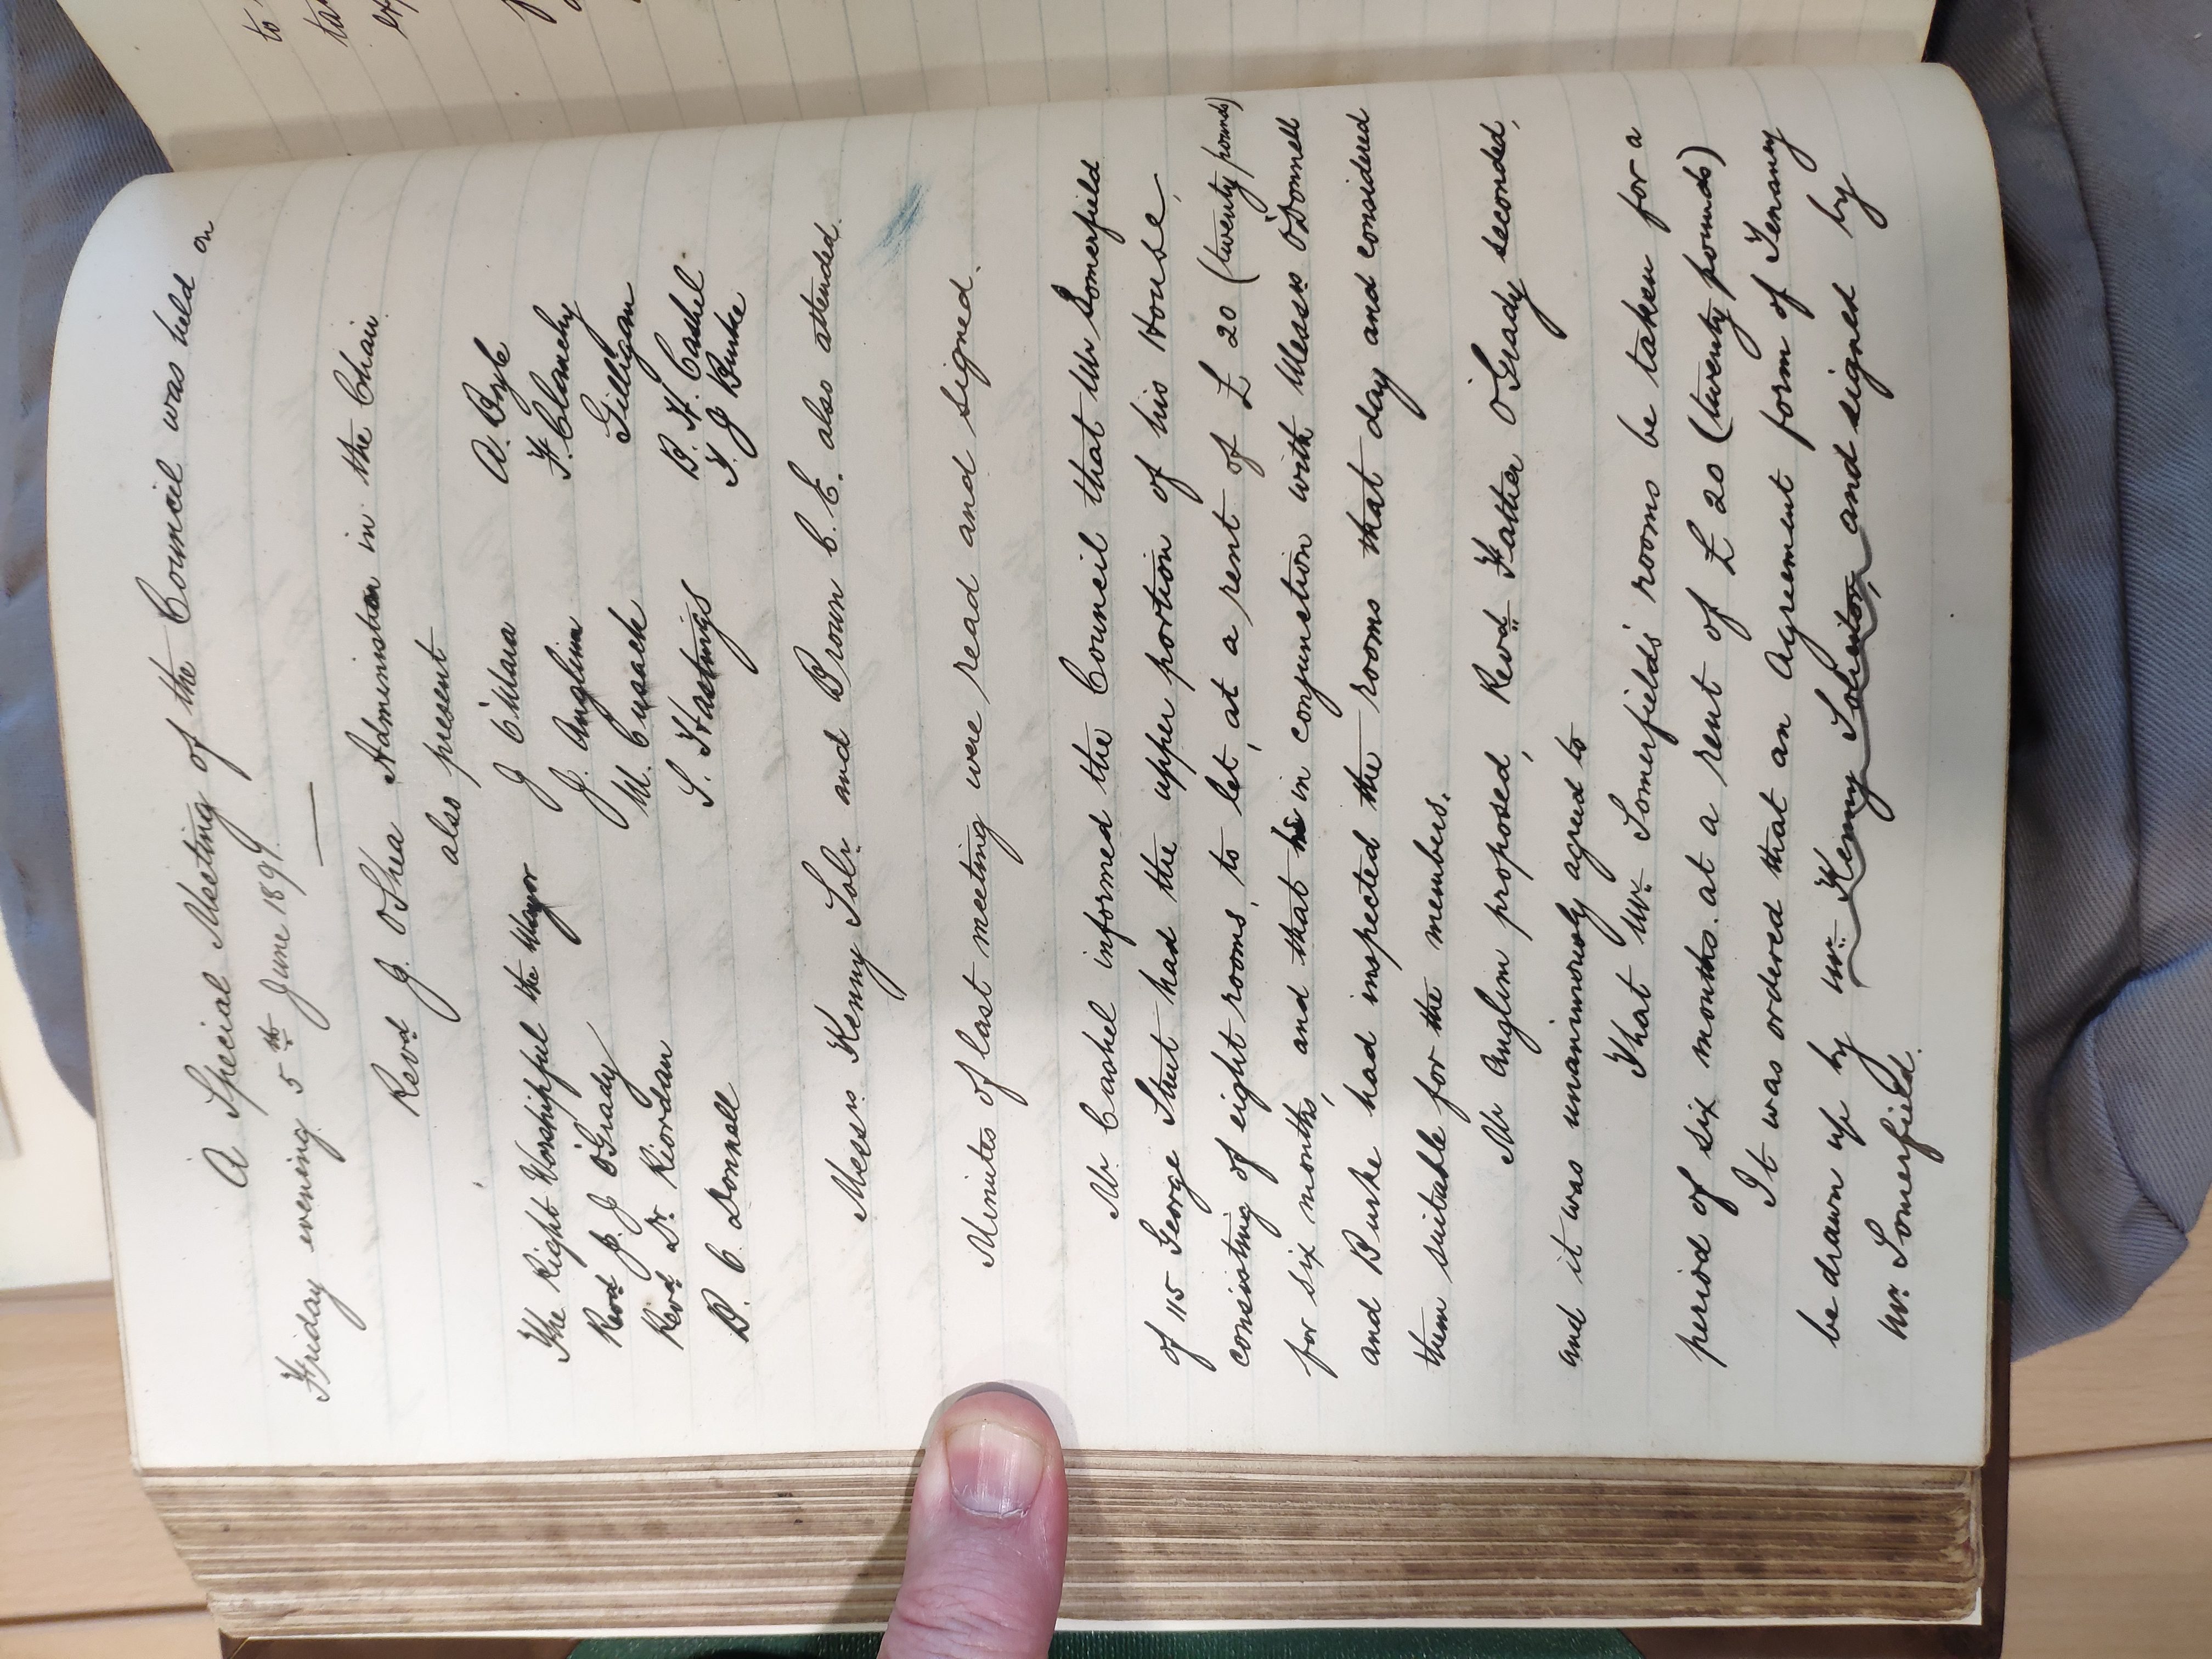 A Special Meeting of the Council was held on
Friday evening 5th June 1891.
Revd J. O'Shea Administon in the Chair.
also present
The Right Worshipful the Mayor J O'Mara A. Boyle
Revd J. J O'Grady J. Anglim F. Clanchy
Revd Dr. Riordan M. Cusack Gilligan
P. C. Donnell S. Hastings B. F. Cashel
T. J Burke
Messrs Kenny Solr. and Brown C. E. also attended.
Minutes of last meeting were read and signed.
Mr. Cashel informed the Council that Mr Somerfield
of 115 George Street had the upper portion of his House,
consisting of eight rooms, to let, at a rent of £20 (twenty pounds)
for six months, and that he in conjunction with Messrs O'Donnell
and Burke had inspected the rooms that day and considered
them suitable for the members.
Mr Anglim proposed, Revd Father O'Grady seconded,
and it was unanimously agreed to
That Mr. Somerfields' rooms be taken for a
period of six months. at a rent of £20 (twenty pounds)
It was ordered that an agreement form of Tenancy
be drawn up by Mr. Kenny Solicitor, and signed by
Mr. Somerfield.